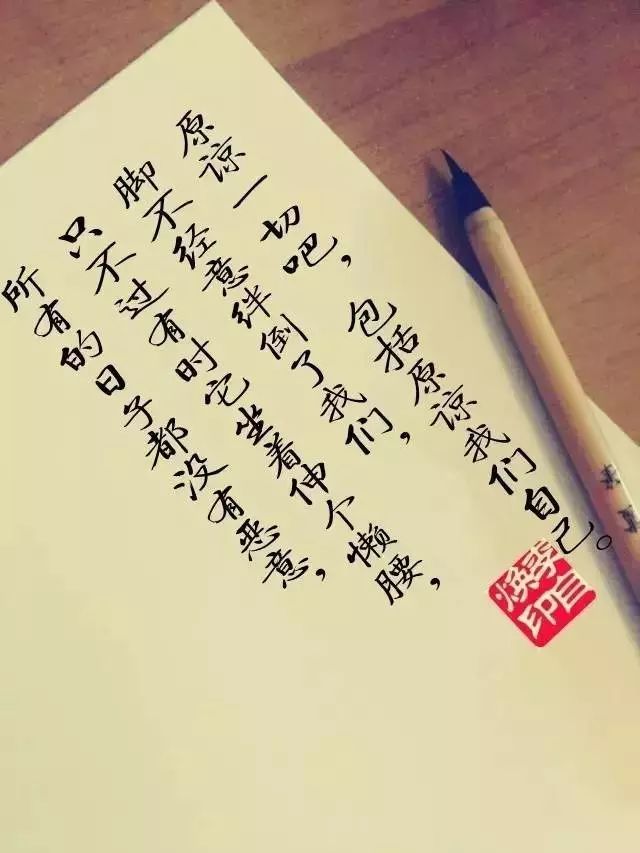 所有的日子都没有恶意，
只不过有时它坐着伸个懒腰，
脚不经意绊倒了我们，
原谅一切吧，包括原谅我们自己。
李三
焕印